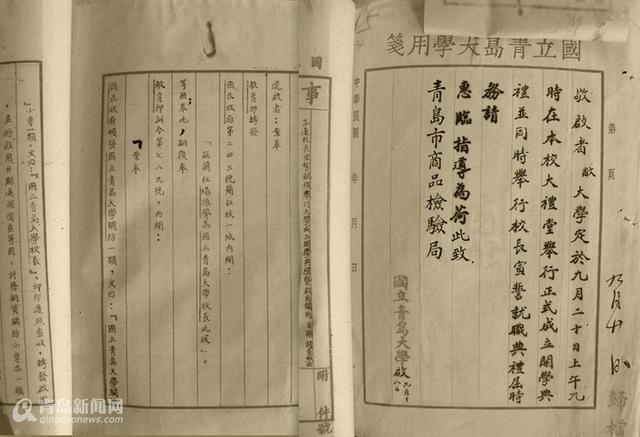 國立青島大學用箋
敬啟者敝大學定於九月二十日上午九
時在本校大禮堂舉行正式成立開學典
禮並同時舉行校長宣誓就職典禮屆時
務請
惠臨指導為荷此致
青島市商品檢驗局
國立青島大學啟
九月十八日
中華民國 年 月 日
第 頁
歸檔
事
附件號
逕啟者:案奉
教育部轉發
國民政府第二四二號簡任狀一紙內開:
「茲簡任楊振聲為國立青島大學校長此狀」。
等因奉此,嗣復奉
教育部訓令第七八九號,內開:
「案奉
國民政府頒發國立青島大學關防一顆,文曰:「國立青島大學關
小章一顆,文曰:「國立青島大學校長」,仰即遵照查收,轉發啟
青岛新闻网
qingdaonews.com